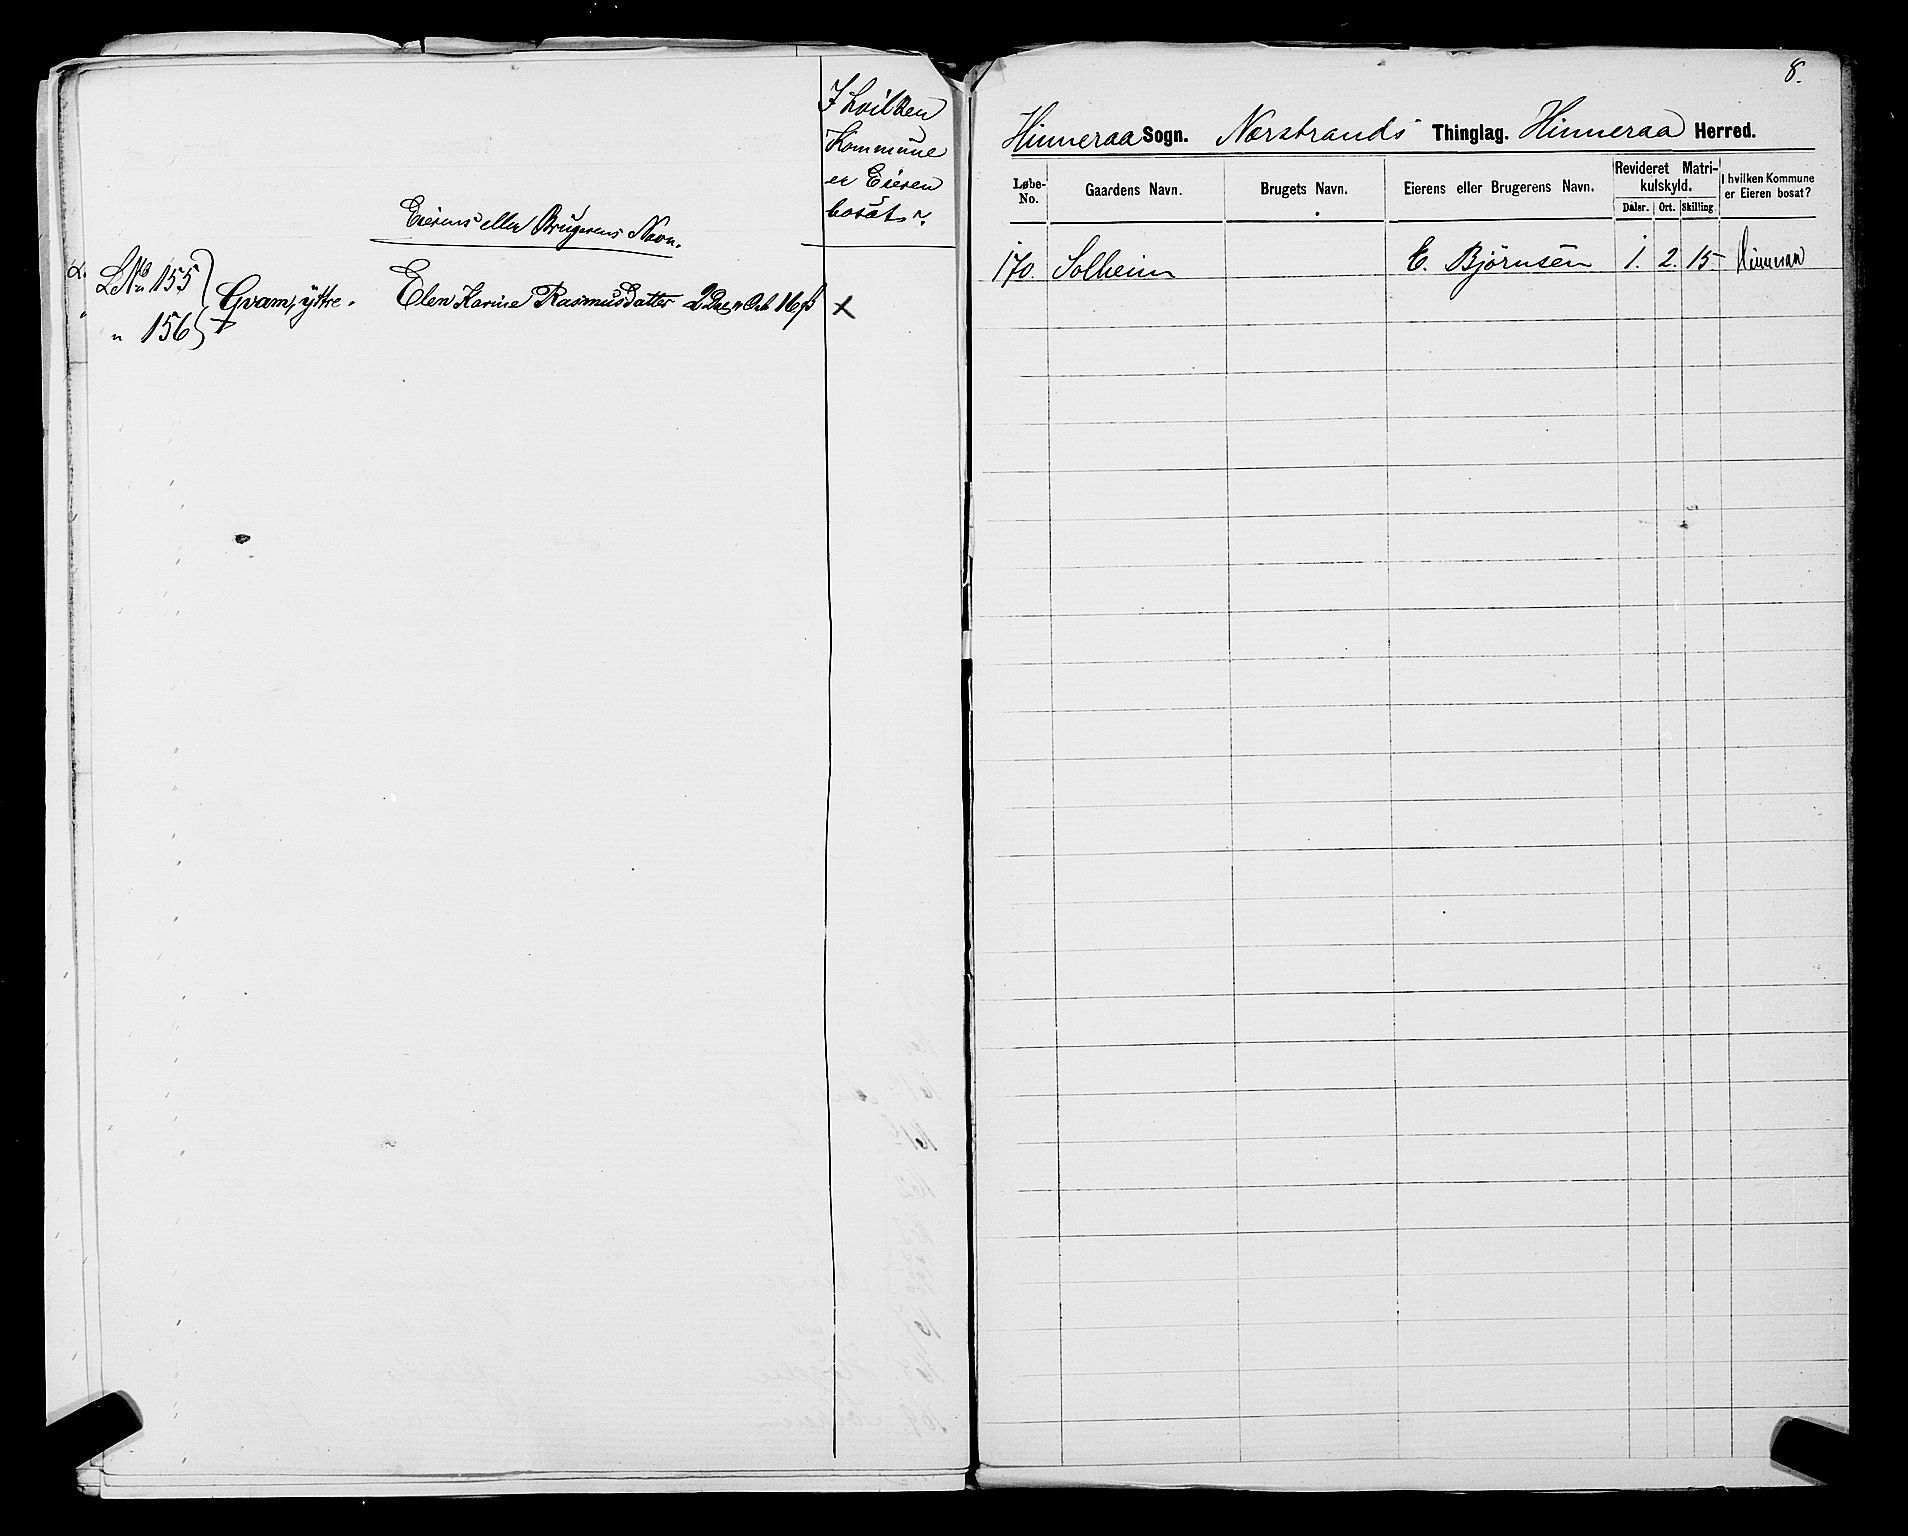 I hvilken
Kommune
er Eieren
bosat?
Eierens eller Brugerens Navn.
LNo 155
Gvam, yttre. Elen Karine Rasmusdatter 2 Dal. " Ort 16 β x
" 156
8.
Hinneraa Sogn. Nærstrands Thinglag. Hinneraa Herred.
Løbe-No. Gaardens Navn. Brugets Navn. Eierens eller Brugerens Navn. Revideret Matri-kulskyld. I hvilken Kommune er Eieren bosat?
Daler. Ort. Skilling
170. Solheim E. Bjørnsen 1. 2. 15. Hinneraa